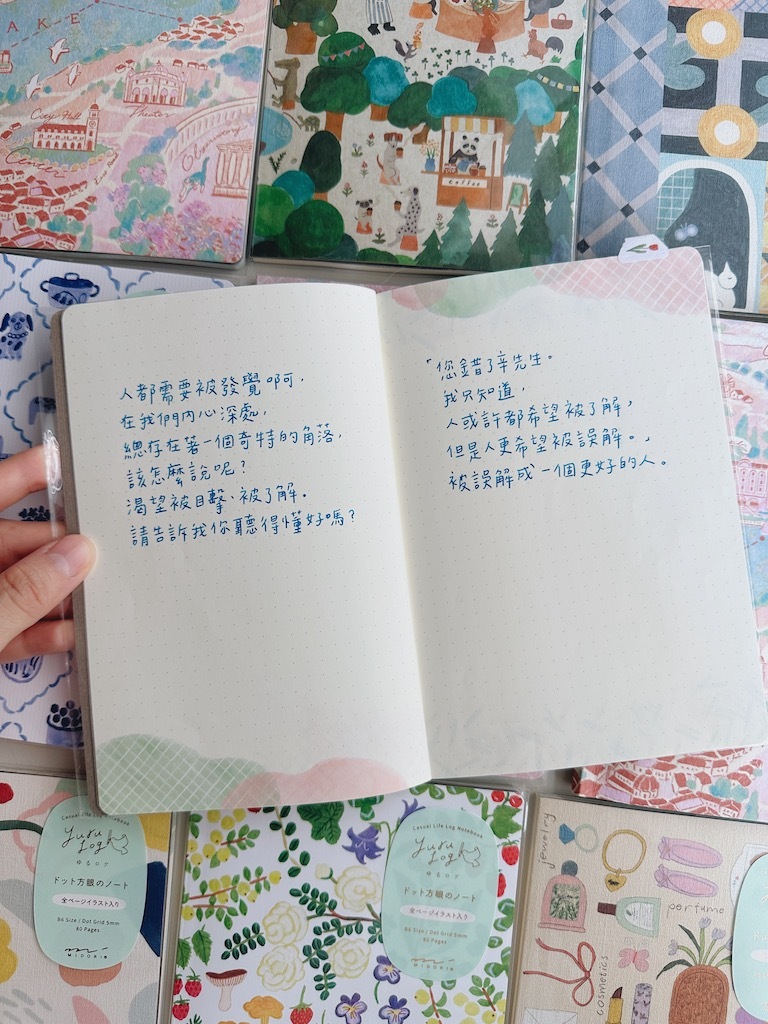 AKE
City Hall
Theater
Center
coffee
人都需要被發覺啊，
在我們內心深處，
總存在著一個奇特的角落，
該怎麼說呢？
渴望被目擊、被了解。
請告訴我你聽得懂好嗎？
「您錯了辛先生。
我只知道，
人或許都希望被了解，
但是人更希望被誤解。」
被誤解成一個更好的人。
Casual Life Log Notebook
yuru
log
ゆるログ
ドット方眼のノート
全ページイラスト入り
B6 Size / Dot Grid 5mm
80 Pages
MIDORI
Casual Life Log Notebook
yuru
log
ゆるログ
ドット方眼のノート
全ページイラスト入り
B6 Size / Dot Grid 5mm
80 Pages
MIDORI
jewelry
perfume
cosmetics